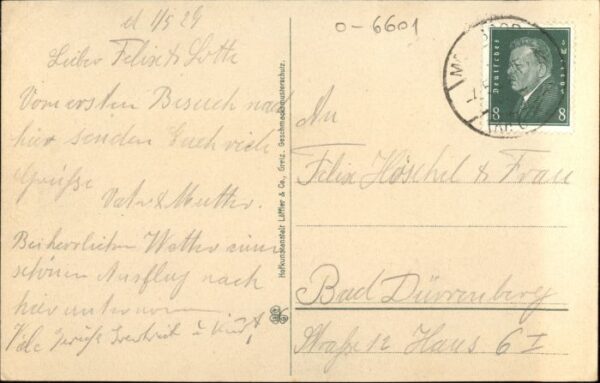 d. 1/5 29
o-6601
Lieber Felix & Lotte
Vom ersten Besuch nach
hier senden Euch viele
Grüße
Vater & Mutter.
Bei herrlichem Wetter einen
schönen Ausflug nach
hier unternommen
Viele Grüße u Kind
Hofkunstanstalt Löffler & Co., Greiz. Geschmacksmusterschutz.
Deutsches Reich
8 8
An
Felix Höschel & Frau
Bad Dürrenberg
Straße 12 Haus 6 I